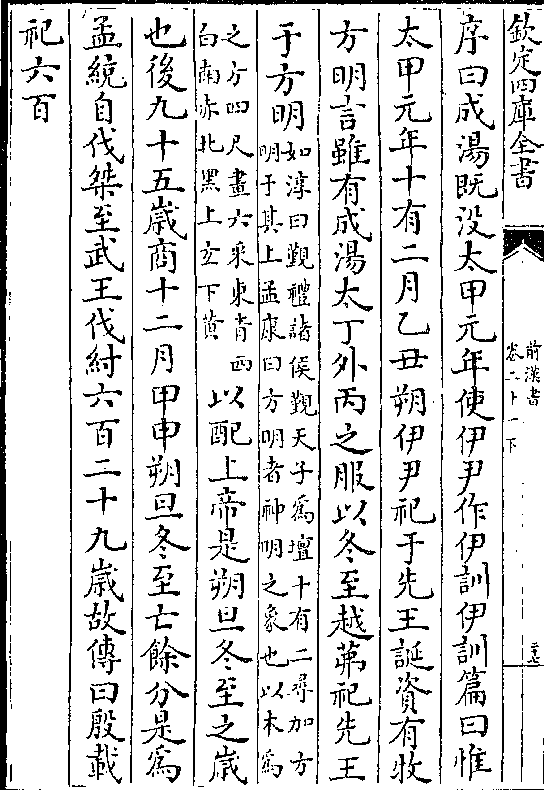 欽定四庫全書
前漢書
卷二十一下
序曰成湯既没太甲元年使伊尹作伊訓伊訓篇曰惟
太甲元年十有二月乙丑朔伊尹祀于先王誕資有牧
方明言雖有成湯太丁外丙之服以冬至越茀祀先王
于方明如淳曰覲禮諸侯覲天子為壇十有二尋加方
明于其上孟康曰方明者神明之象也以木為
之方四尺畫六采東青西
白南赤北黑上玄下黄以配上帝是朔旦冬至之歲
也後九十五歲商十二月甲申朔旦冬至亡餘分是為
孟統自伐桀至武王伐紂六百二十九歲故傳曰殷載
祀六百